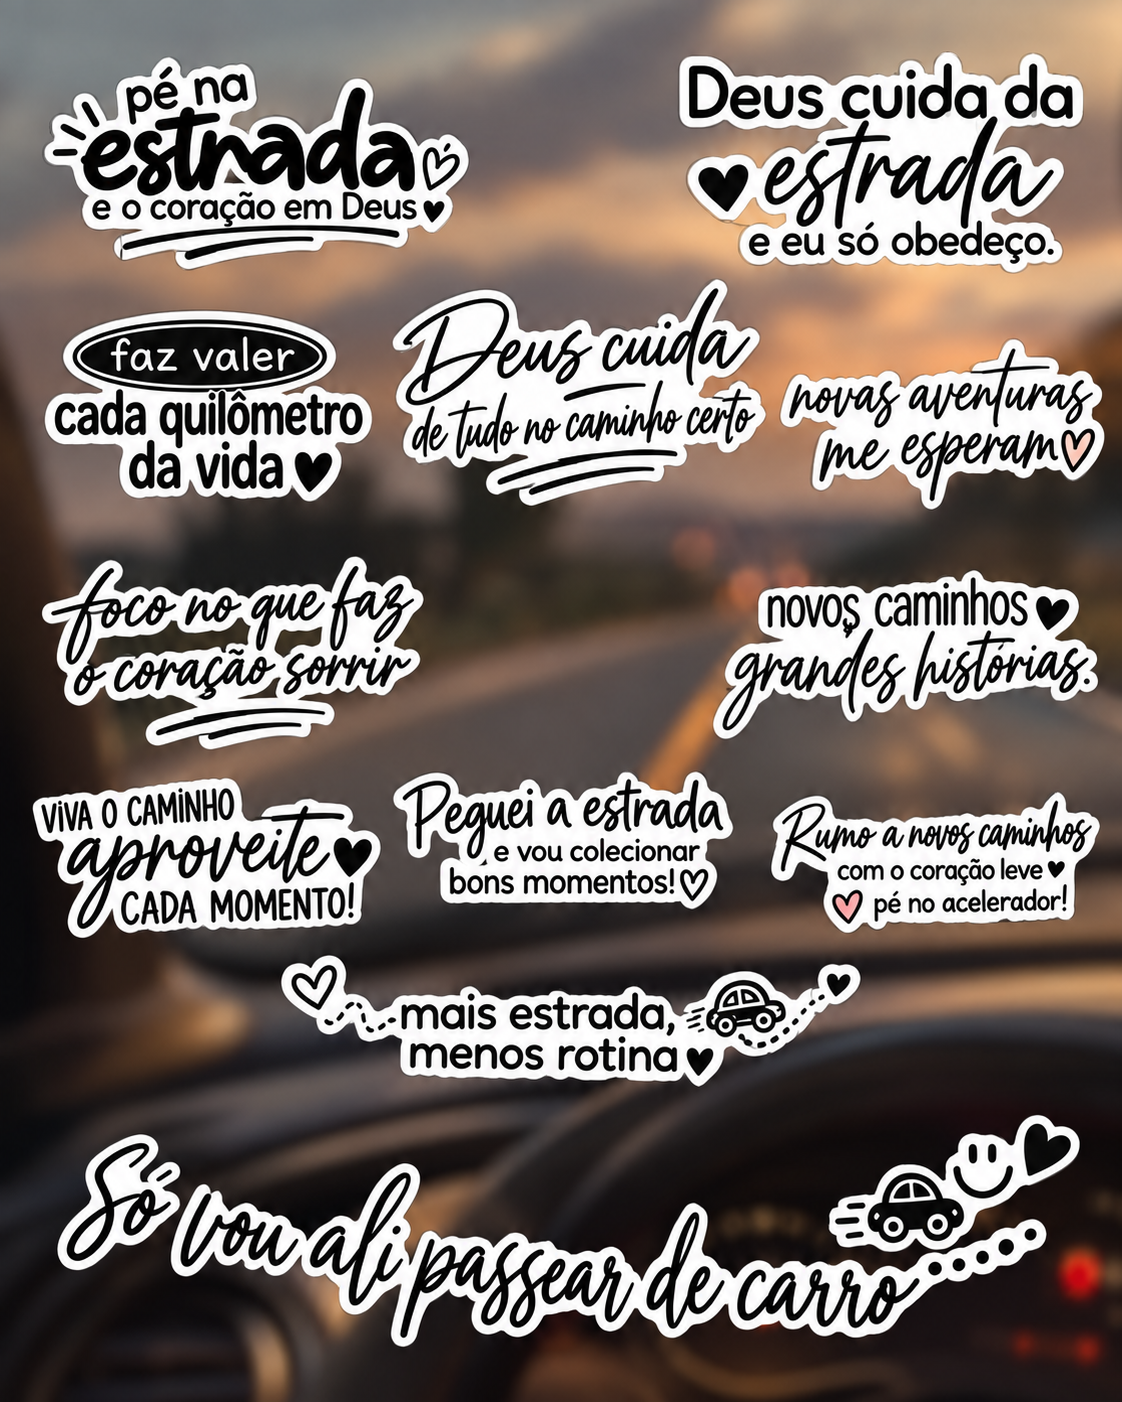 pé na
estrada
e o coração em Deus
Deus cuida da
estrada
e eu só obedeço.
faz valer
cada quilômetro
da vida
Deus cuida
de tudo no caminho certo
novas aventuras
me esperam
foco no que faz
o coração sorrir
novos caminhos
grandes histórias.
VIVA O CAMINHO
aproveite
CADA MOMENTO!
Peguei a estrada
e vou colecionar
bons momentos!
Rumo a novos caminhos
com o coração leve
pé no acelerador!
mais estrada,
menos rotina
Só vou ali passear de carro